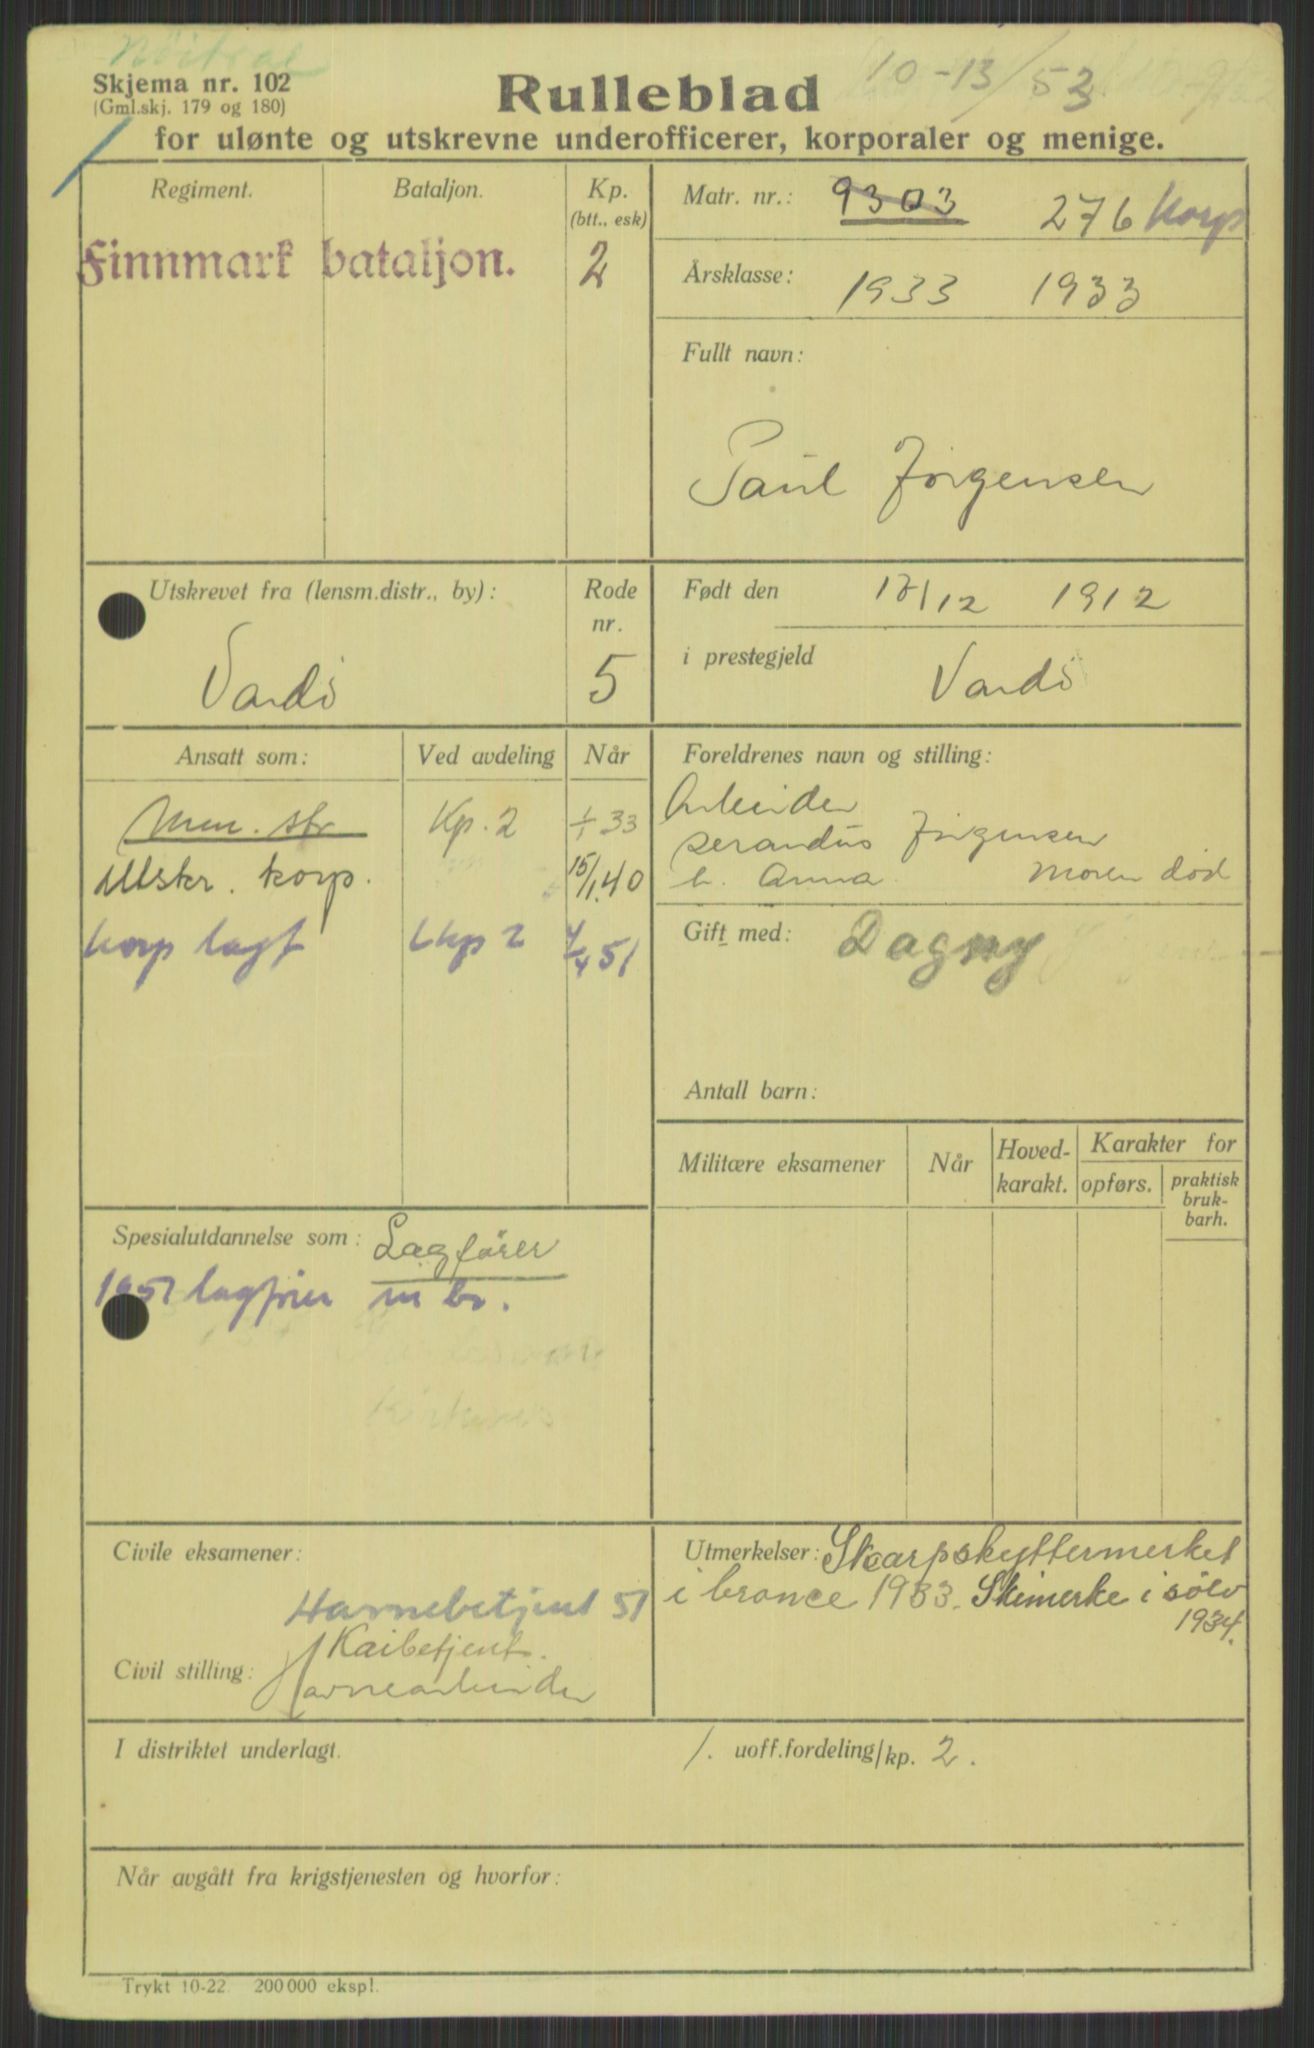 Nöitral
Skjema nr. 102
(Gml.skj. 179 og 180)
Rulleblad
10-13/53
for ulønte og utskrevne underofficerer, korporaler og menige.
Regiment.
Bataljon.
Kp.
(btt., esk)
Finnmark bataljon.
2
Matr. nr.: 9303 276 korp
Årsklasse: 1933 1933
Fullt navn:
Paul Jörgensen
Utskrevet fra (lensm.distr., by):
Vardö
Rode
nr.
5
Født den 17/12 1912
i prestegjeld Vardö
Ansatt som:
Ved avdeling
Når
Men. str Kp. 2 ÷ 33
Utskr. korp. 15/1.40
korp lagf Lkp 2 4/4 51
Foreldrenes navn og stilling:
Arbeider
Serandus Jörgensen
h. Anna. Moren död
Gift med: Dagny
Antall barn:
Militære eksamener
Når
Hoved-
karakt.
Karakter for
opførs.
praktisk
bruk-
barh.
Spesialutdannelse som: Lagfører
1951 lagfører m br.
Kirkenes
Civile eksamener:
Havnebetjent 51
Kaibetjent.
Civil stilling: Havnearbeider
Utmerkelser: Skarpskyttermerket
i bronce 1933. Skimerke i sølv
1934.
I distriktet underlagt.
1. uoff.fordeling/kp. 2.
Når avgått fra krigstjenesten og hvorfor:
Trykt 10-22. 200 000 ekspl.